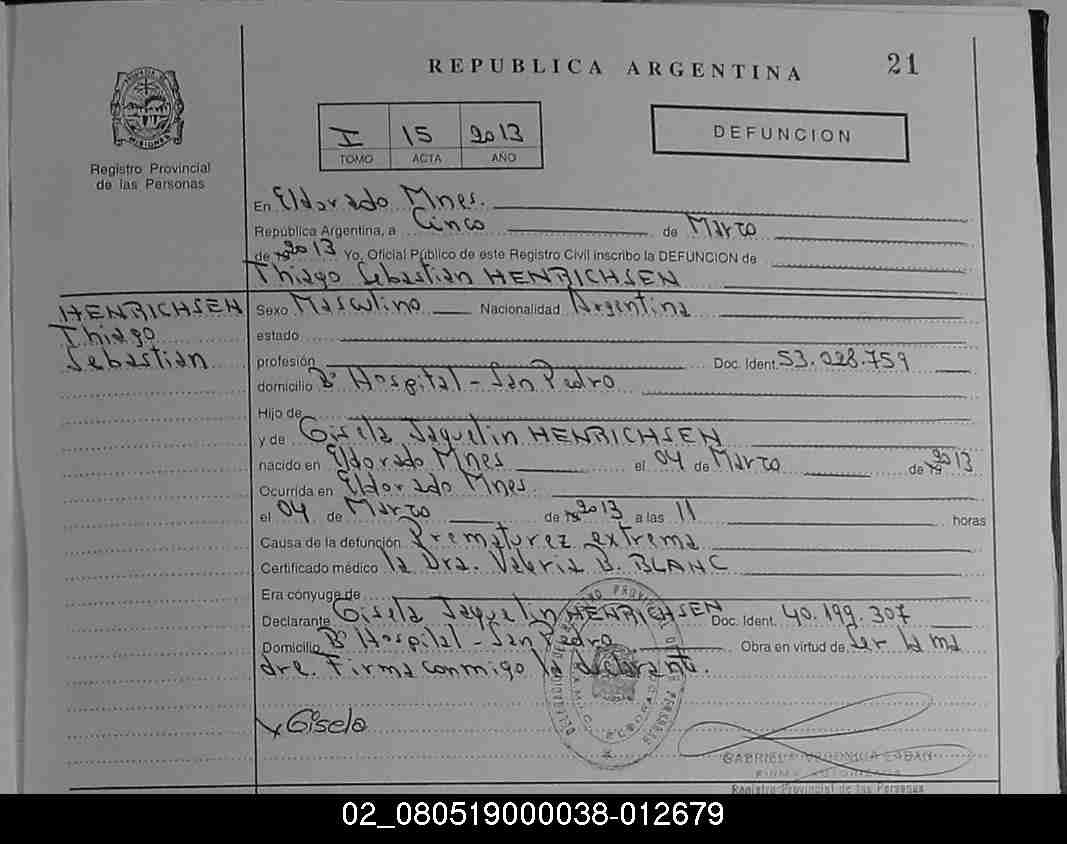 REPUBLICA ARGENTINA 21
PROVINCIA DE MISIONES
Registro Provincial
de las Personas
I 15 2013
TOMO ACTA AÑO
DEFUNCION
En Eldorado Mnes.
República Argentina, a Cinco de Marzo
de 2013 Yo, Oficial Público de este Registro Civil inscribo la DEFUNCION de
Thiago Sebastian HENRICHSEN
HENRICHSEN
Thiago
Sebastian
Sexo Masculino Nacionalidad Argentina
estado
profesión Doc. Ident. 53.028.759
domicilio Bº Hospital - San Pedro
Hijo de
y de Gisela Jaquelin HENRICHSEN
nacido en Eldorado Mnes el 04 de Marzo de 2013
Ocurrida en Eldorado Mnes.
el 04 de Marzo de 2013 a las 11 horas
Causa de la defunción Prematurez extrema
Certificado médico la Dra. Valeria B. BLANC
Era cónyuge de
Declarante Gisela Jaquelin HENRICHSEN Doc. Ident. 40.199.307
Domicilio Bº Hospital - San Pedro Obra en virtud de ser la ma
dre. Firma conmigo la declarante.
x Gisela
Registro Provincial de las Personas
02_080519000038-012679